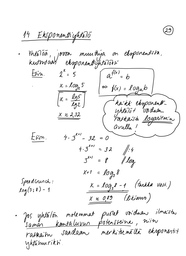 29
14 Eksponenttiyhtälö
• Yhtälöä, jossa muuttuja on eksponentissa,
kutsutaan eksponenttiyhtälöksi
Esim. 2^x = 5
x = log_2 5
x = lg5/lg2
x ≈ 2,32
a^f(x) = b
⇔ f(x) = log_a b
Kaikki eksponentti-
yhtälöt voidaan
ratkaista logaritmin
avulla!
Esim. 4·3^(x+1) - 32 = 0
4·3^(x+1) = 32 //:4
3^(x+1) = 8 // log
x+1 = log_3 8
x = log_3 8 - 1 (tarkka arvo)
x ≈ 0,89
Speedcrunch:
log(3;8) - 1
• Jos yhtälön molemmat puolet voidaan ilmaista
saman kantaluvun potensseina, niin
ratkaisu saadaan merkitsemällä eksponentit
yhtäsuuriksi